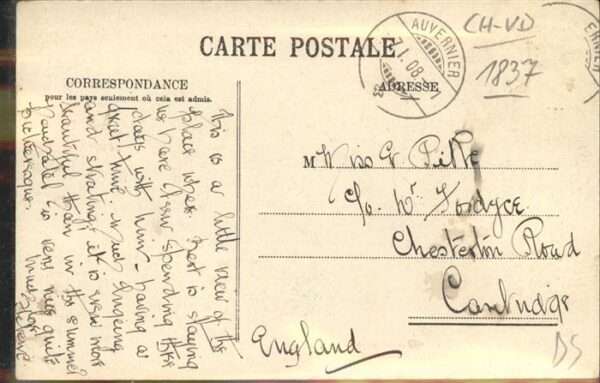 CARTE POSTALE
CORRESPONDANCE
pour les pays seulement où cela est admis.
ADRESSE
AUVERNIER
7.I.08
CH-VD
1837
This is a little view of the
place where Bert is staying
we here spending
days with him - having a
great time
and skating, it is even more
beautiful than in the summer
Neuchatel is very nice quite
picturesque.
much love
M Miss E
c/o Wm Fordyce
Chesterton Road
Cambridge
England
DS